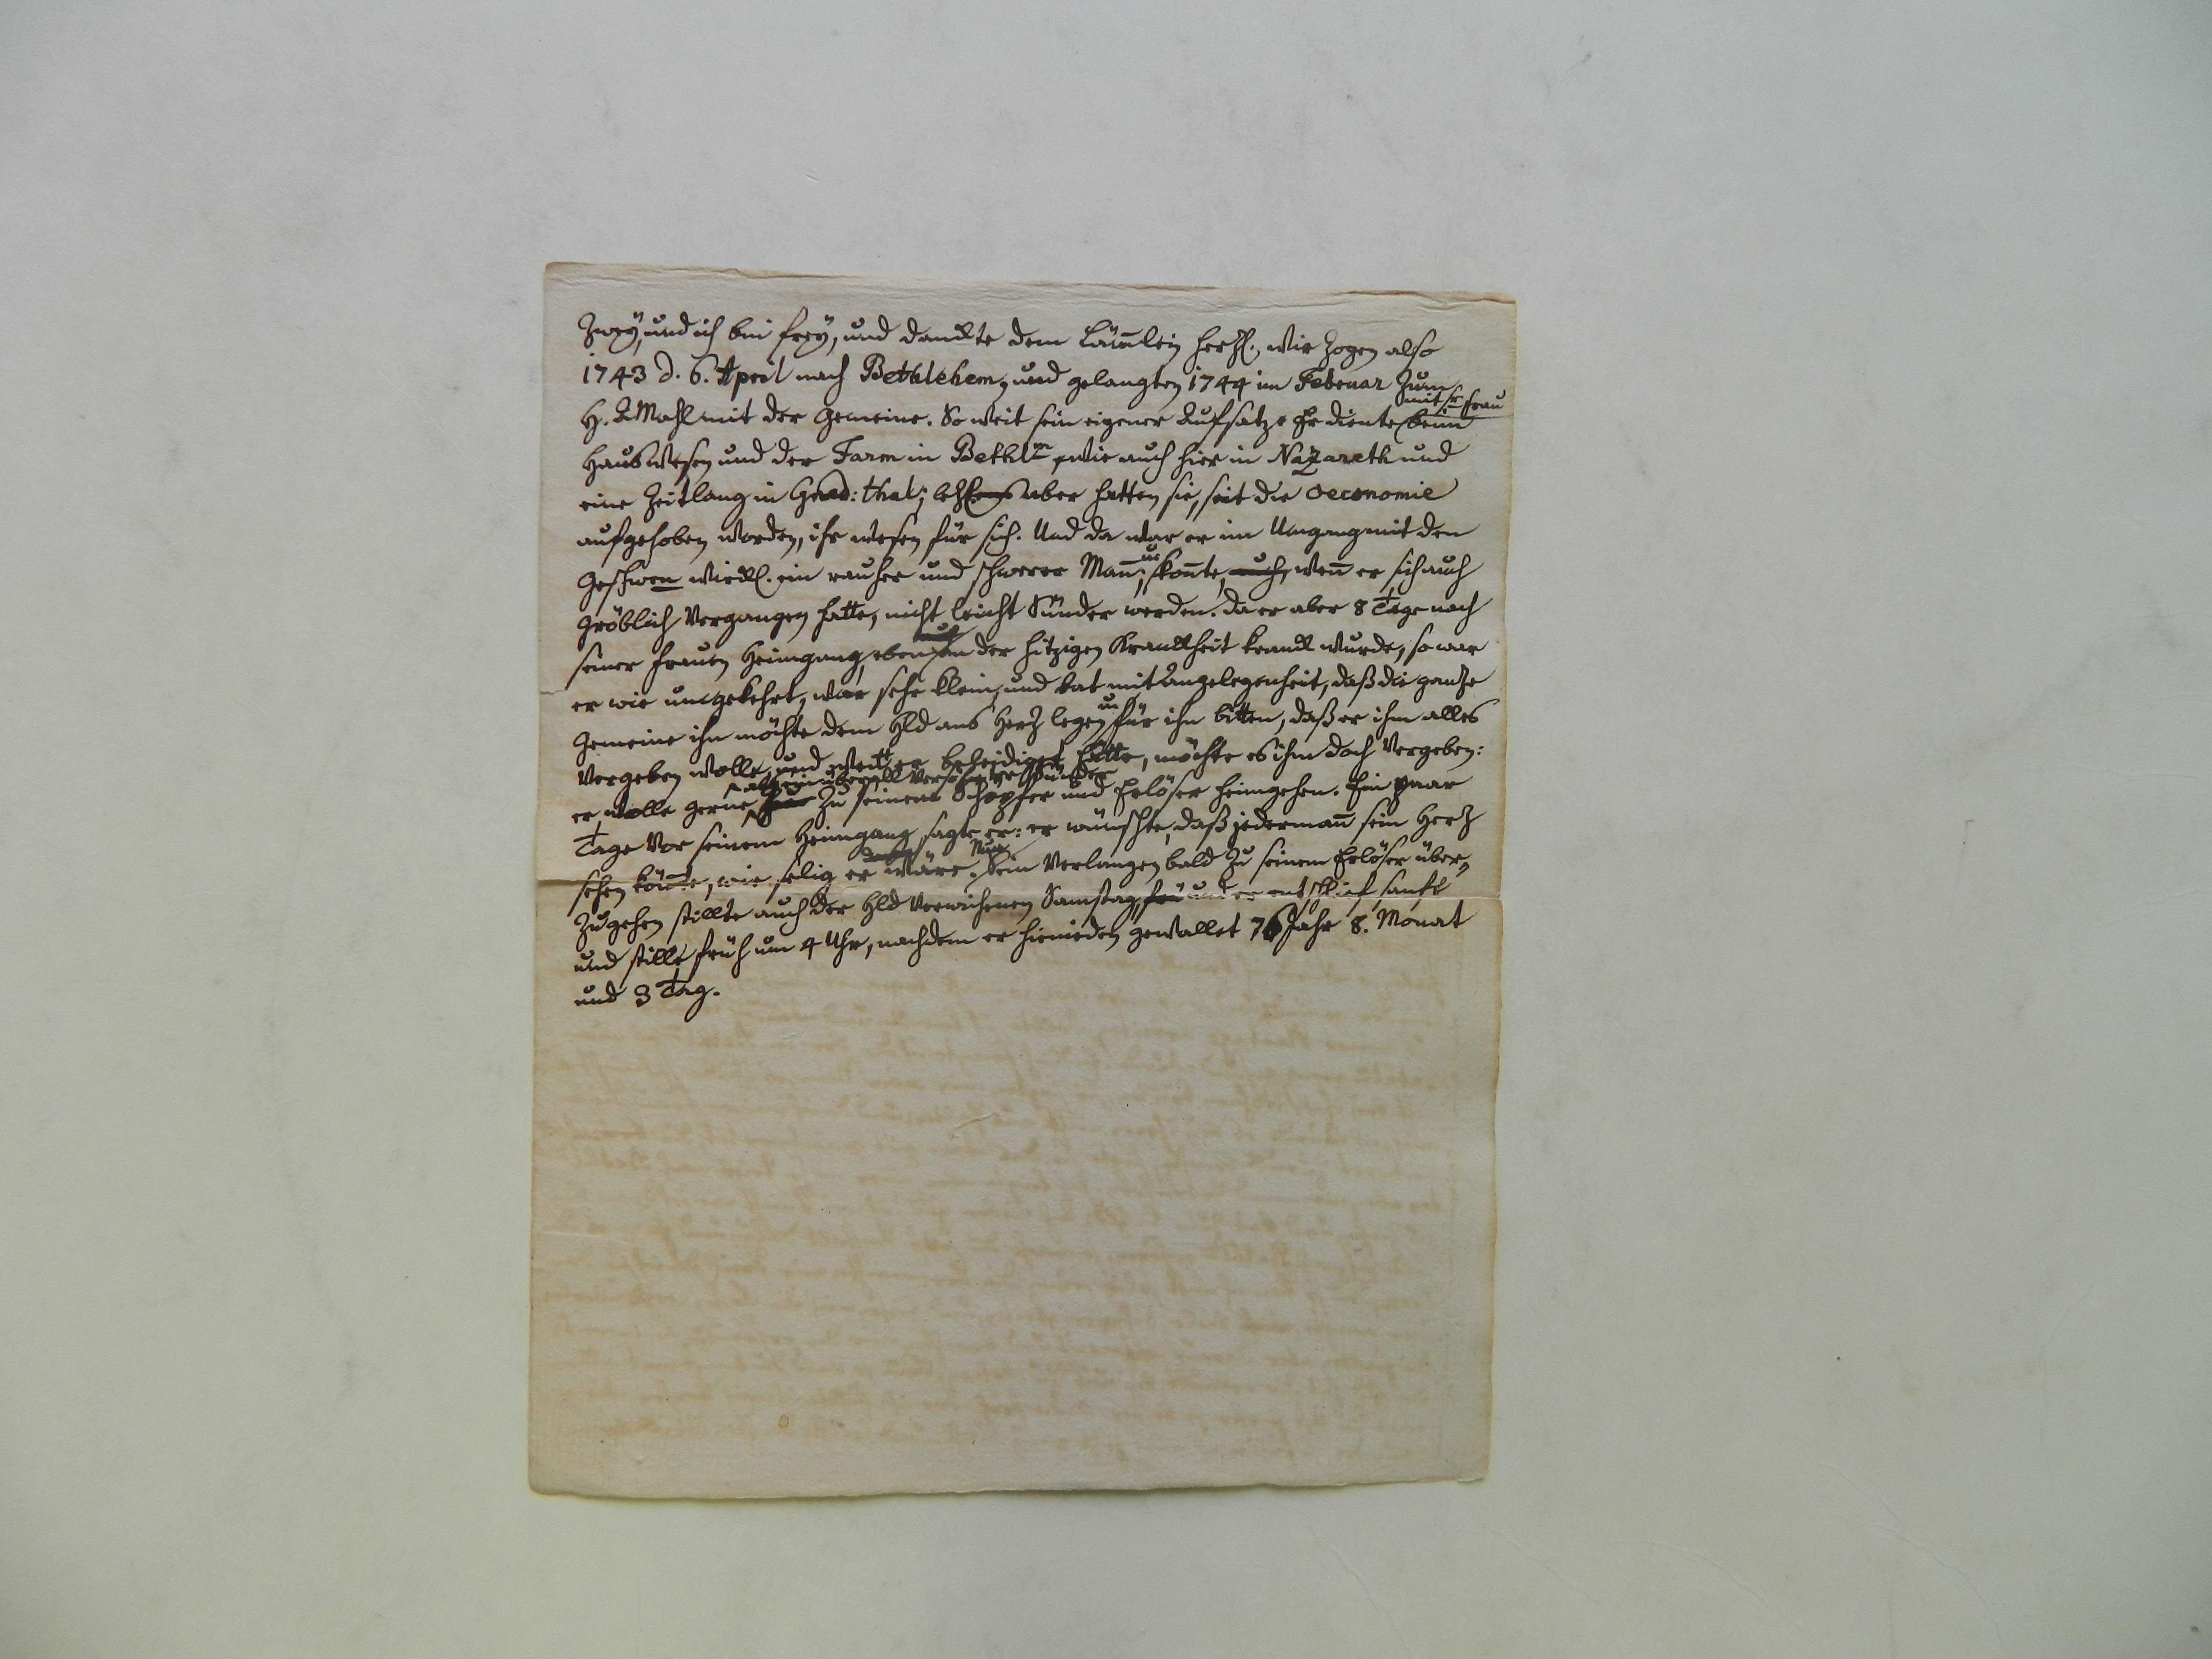 Zwey, und ich bin frey, und danckte dem Lämlein herzl. wir zogen also
1743 d. 6. April nach Bethlehem, und gelangten 1744 im Februar zum
H. Mahl mit der Gemeine. So weit sein eigener Aufsatz. Er diente mit sr Frau beim
Hauswesen und der Farm in Bethlm, wie auch hier in Nazareth und
eine Zeitlang in Gnad: thal; aber hatten sie, seit die oeconomie
aufgehoben worden, ihr wesen für sich. Und da war er im Umgang mit den
Geschwrn wirckl. ein rauher und schwerer Mañ; u. konte, auch, weñ er sich auch
gröblich vergangen hatte, nicht leicht Sünder werden. da er aber 8 Tage nach
seiner Frauen Heimgang, eben auch an der hitzigen Kranckheit kranck wurde, so war
er wie umgekehrt, war sehr klein, und bat mit Angelegenheit, daß die ganze
Gemeine ihn möchte dem Hld ans Herz legen u. für ihn bitten, daß er ihm alles
vergeben wolle, und wen er beleidiget hätte, möchte es ihm doch vergeben:
er wolle gerne als ein überall versöhnter Sünder zu seinem Schöpfer und Erlöser heimgehen. Ein paar
Tage vor seinem Heimgang sagte er: er wünschte, daß jedermañ sein Herz
sehen könte, wie selig er wäre. Nun Sein Verlangen bald zu seinem Erlöser über=
zugehen stillte auch der Hld verwichenen Samstag, frü und er entschlief sanft
und stille früh um 4 Uhr, nachdem er hienieden gewallet 76 Jahr 8. Monat
und 3 Tag.